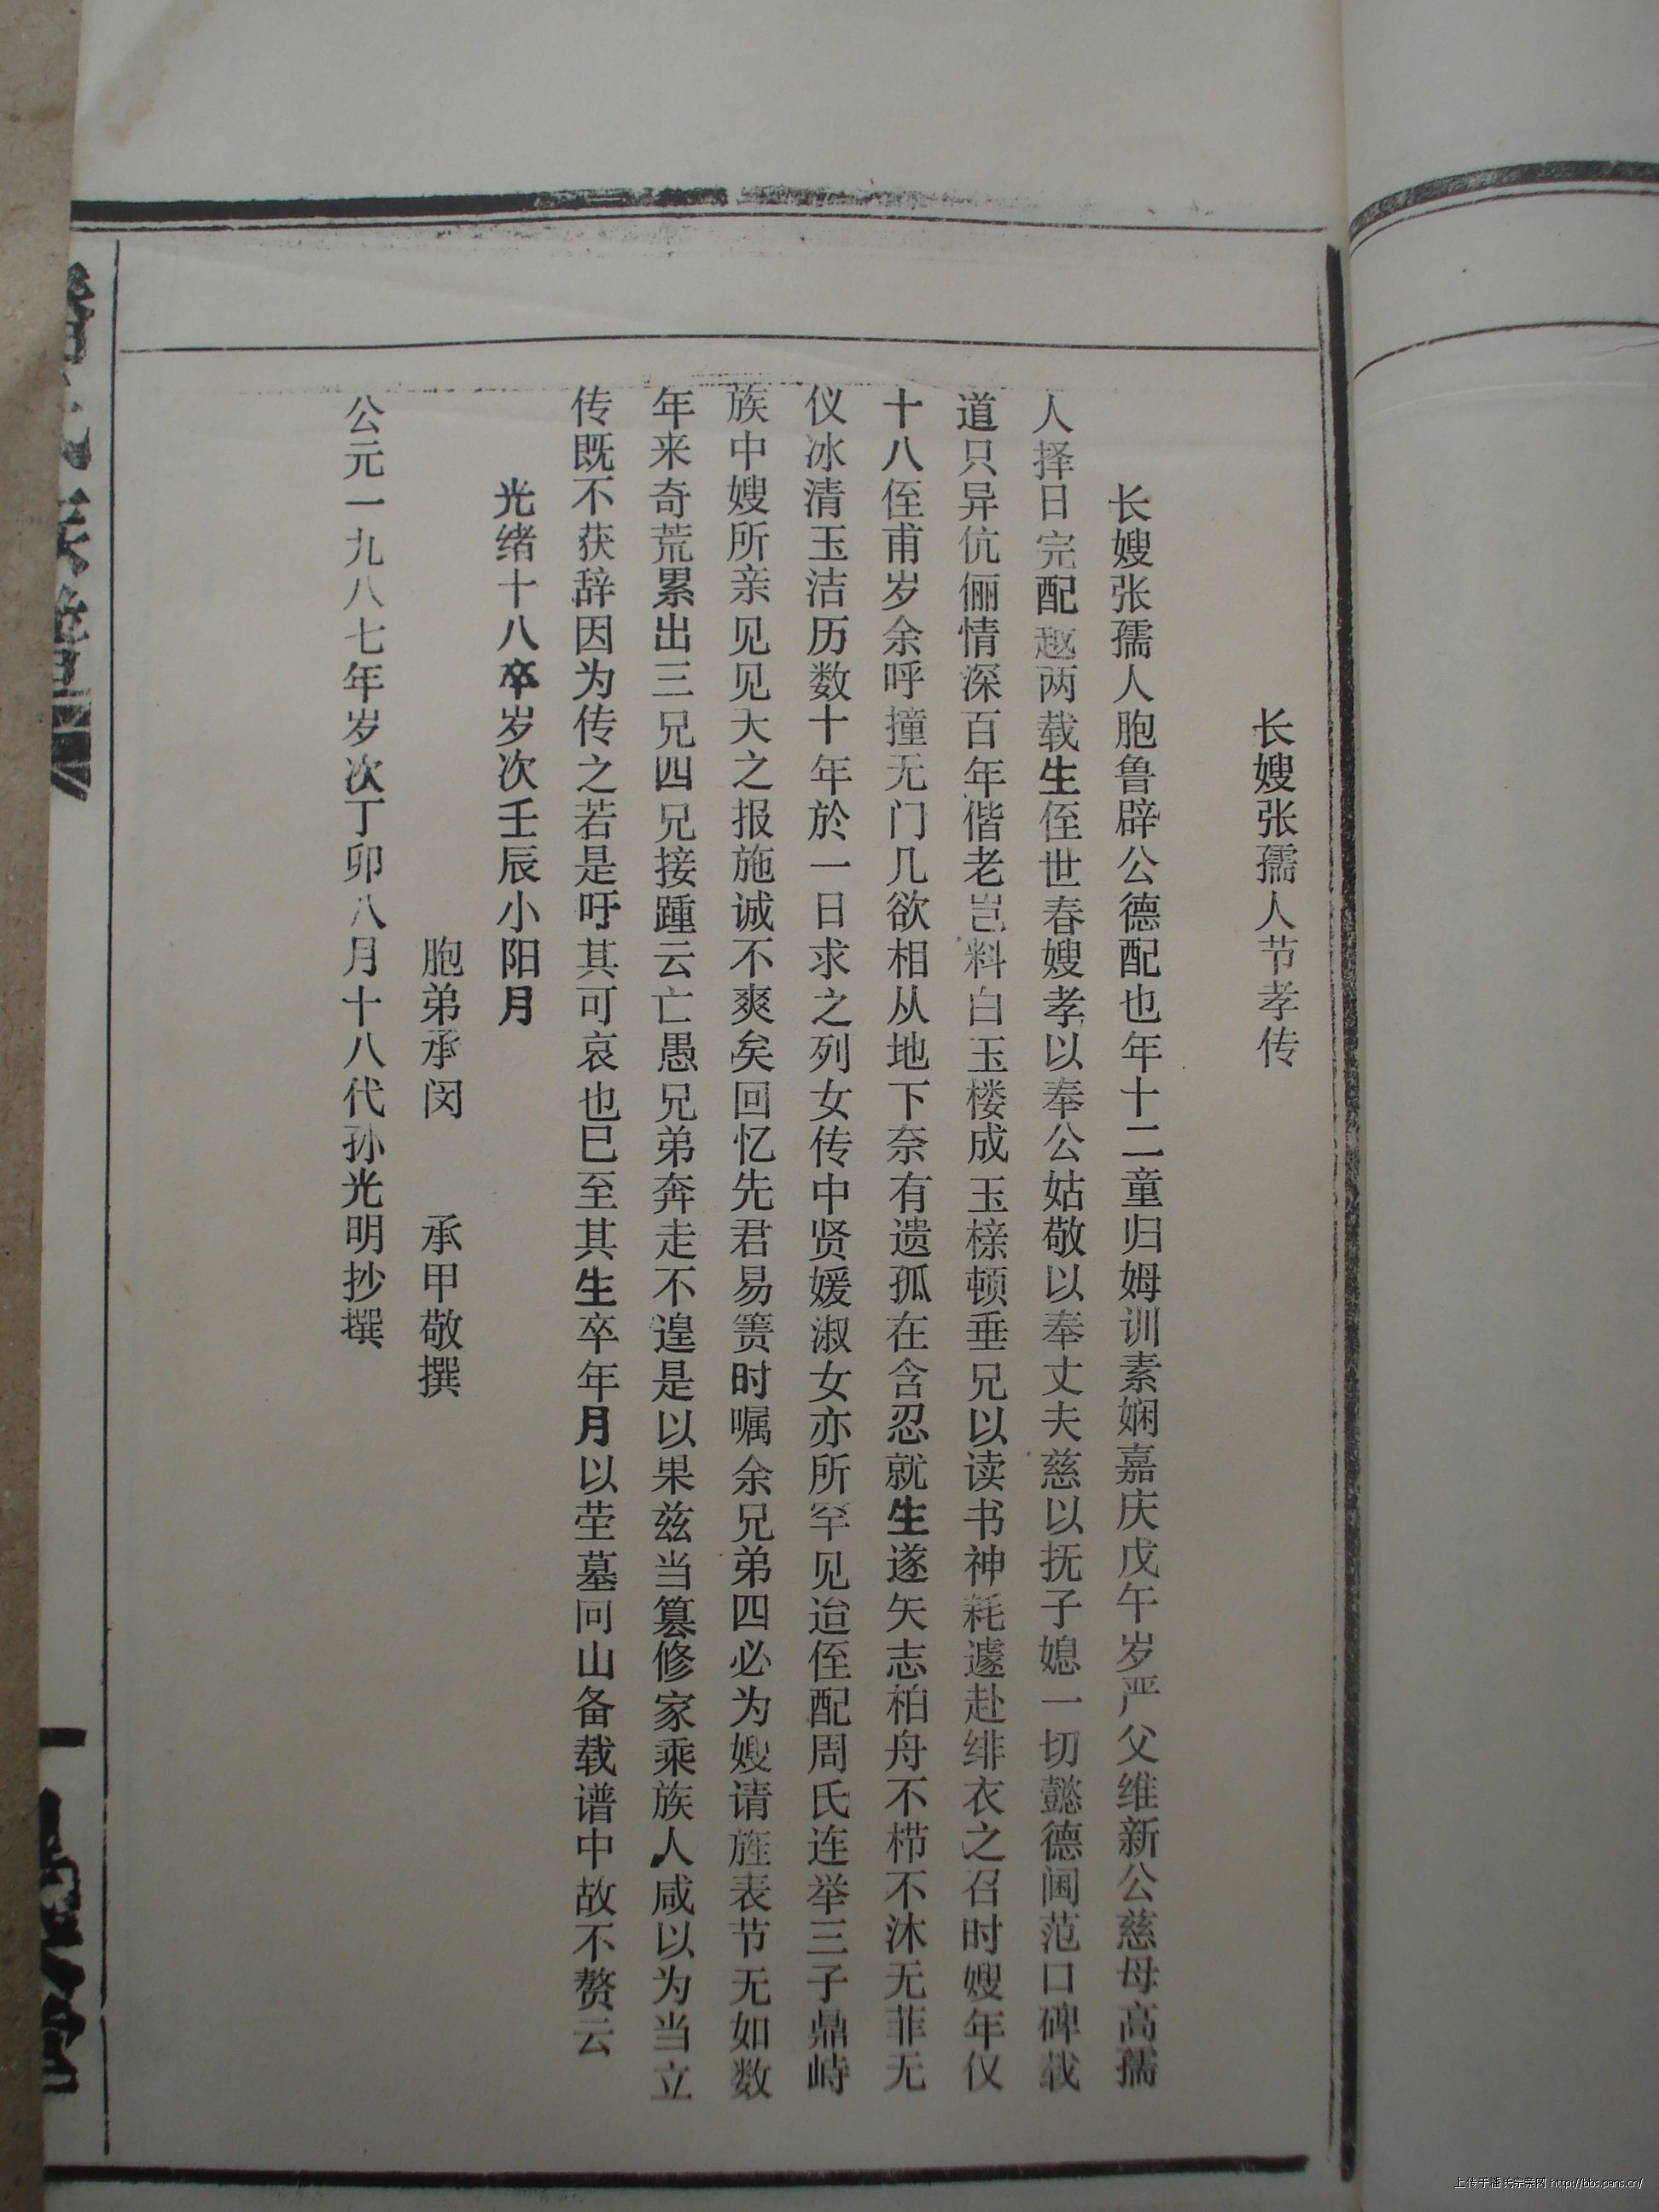 长嫂张孺人节孝传
长嫂张孺人胞鲁辟公德配也年十二童归姆训素娴嘉庆戊午岁严父维新公慈母高孺
人择日完配越两载生侄世春嫂孝以奉公姑敬以奉丈夫慈以抚子媳一切懿德阃范口碑载
道只异伉俪情深百年偕老岂料白玉楼成玉榇顿垂兄以读书神耗遽赴绯衣之召时嫂年仅
十八侄甫岁余呼撞无门几欲相从地下奈有遗孤在含忍就生遂矢志柏舟不栉不沐无菲无
仪冰清玉洁历数十年於一日求之列女传中贤媛淑女亦所罕见迨侄配周氏连举三子鼎峙
族中嫂所亲见见天之报施诚不爽矣回忆先君易箦时嘱余兄弟四必为嫂请旌表节无如数
年来奇荒累出三兄四兄接踵云亡愚兄弟奔走不遑是以果兹当篡修家乘族人咸以为当立
传既不获辞因为传之若是吁其可哀也巳至其生卒年月以茔墓向山备载谱中故不赘云
光绪十八卒岁次壬辰小阳月
胞弟承闵 承甲敬撰
公元一九八七年岁次丁卯八月十八代孙光明抄撰
上传于潘氏宗亲网 http://bbs.pans.cn/